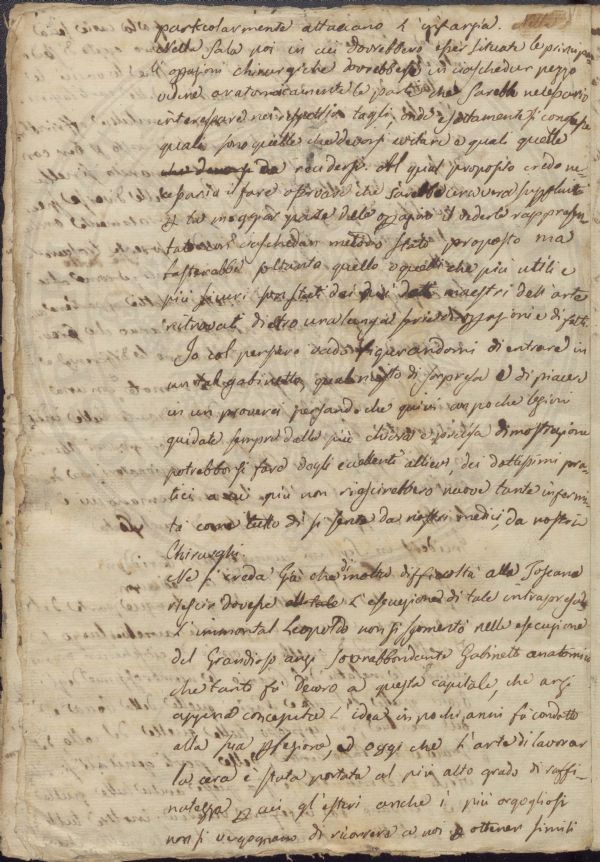 particolarmente attaccano l'infanzia.
Nella Sala poi in cui dovrebbero esser situate le principa
li operazioni chirurgiche dovrebbesi in ciaschedun pezzo
vedere anatomicamente le parti che sarebbe necessario
interessare nei rispettivi tagli, onde esattamente si conoscesse
quali sono quelle che devonsi evitare e quali quelle
che devonsi da recidersi. Al qual proposito credo ne-
cessario il fare osservare che sarebbe una vera superfluità
p la maggior parte delle operazioni il vederle rappresen
tate con ciaschedun metodo stato proposto ma
basterebbe soltanto quello o quelli che più utili e
più sicuri son stati dai più dotti maestri dell'arte
ritrovati dietro una lunga serie di operazioni e di fatti.
Io col pensiero vado figurandomi di entrare in
un tal gabinetto, qual misto di sorpresa e di piacere
in un proverei pensando che quivi con poche lezioni
guidate sempre dalla più chiara e precisa dimostrazione
potrebbersi fare degli eccellenti allievi dei dottissimi pra-
tici a cui più non riescirebbero nuove tante infermi-
tà come tutto dì si sente da nostri medici, da nostri
Chirurghi.
Ne si creda già che di molta difficoltà alla Toscana
riescir dovesse l'esecuzione di tale intrapresa
L'immortal Leopoldo non si sgomentò nella esecuzione
del Grandioso anzi Sovrabbondante Gabinetto anatomico
che tanto fà decoro a questa capitale, che anzi
appena concepita l'idea in pochi anni fù condotto
alla sua perfezione, ed oggi che l'arte di lavorar
la cera è stata portata al più alto grado di raffi-
natezza p cui gl'esteri anche i più orgogliosi
non si vergognano di ricorrere a noi p ottener simili